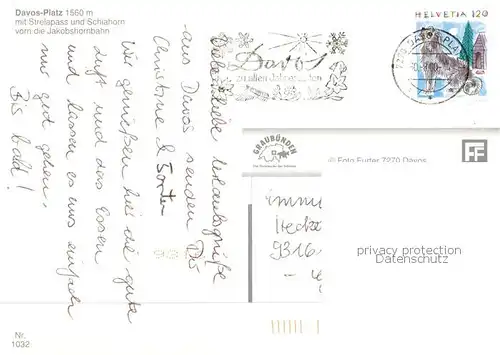 Davos-Platz 1560 m
mit Strelapass und Schiahorn
vorn die Jakobshornbahn
HELVETIA 120
Davos
zu allen Jahreszeiten
GRAUBÜNDEN
© Foto Furter 7270 Davos
FF
Liebe liebe Urlaubsgrüße
aus Davos senden Dir
Christine &
Wir genießen hier die gute
Luft und das Essen
und lassen es uns einfach
nur gut gehen.
Bis bald!
9316
privacy protection
Datenschutz
Nr.
1032